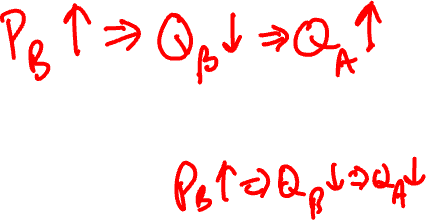 P_B ↑ ⇒ Q_B ↓ ⇒ Q_A ↑
P_B ↑ ⇒ Q_B ↓ ⇒ Q_A ↓